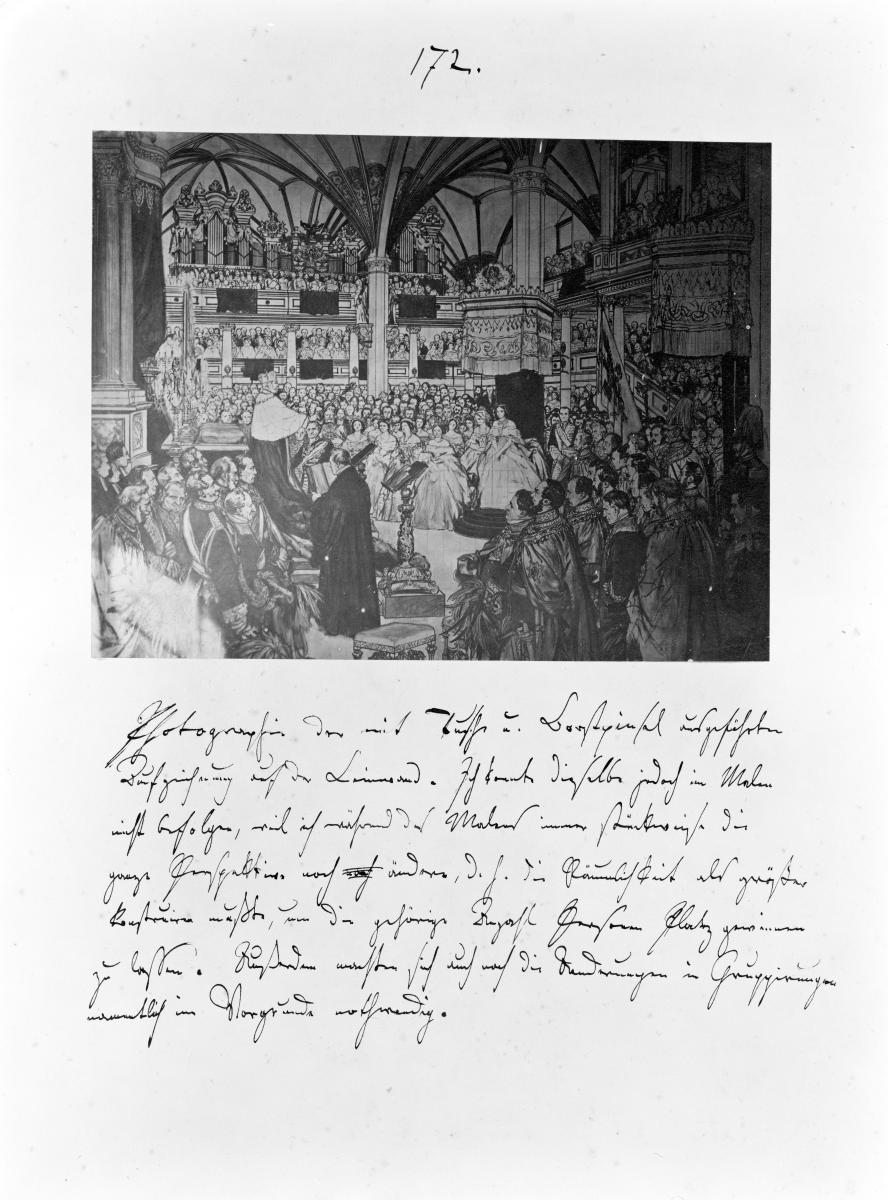 172.
Photographie der mit Tusche u. Borstpinsel ausgeführten
Aufzeichnung auf der Leinwand. Ich konnte dieselbe jedoch im Malen
nicht befolgen, weil ich während des Malens immer stückweise die
ganze Perspektive noch ändern, d. h. die Räumlichkeit als größer
konstruiren mußte, um die gehörige Anzahl Personen Platz gewinnen
zu lassen. Außerdem machten sich auch noch die Aenderungen in Gruppirungen
namentlich im Vorgrunde nothwendig.